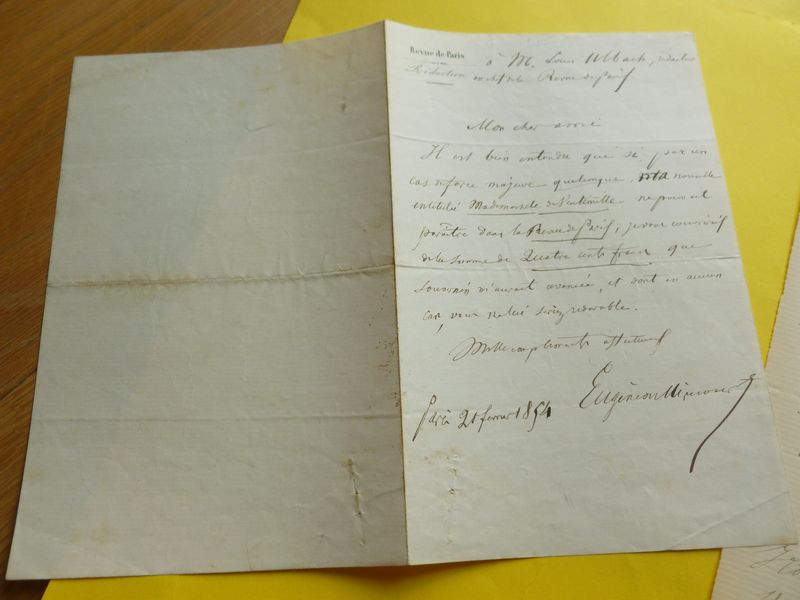 Revue de Paris
Rédaction
à M. Louis Ulbach, rédacteur
en chef de la Revue de Paris
Mon cher ami
Il est bien entendu que si, par un
cas de force majeure quelconque, ma nouvelle
intitulée Mademoiselle de ne pouvait
paraître dans la Revue de Paris, je vous couvrirais
de la somme de Quatre cents francs que
m'aurait avancée, et dont en aucun
cas, vous ne seriez redevable.
Mille compliments affectueux
Eugène de Mirecourt
Paris 21 février 1854